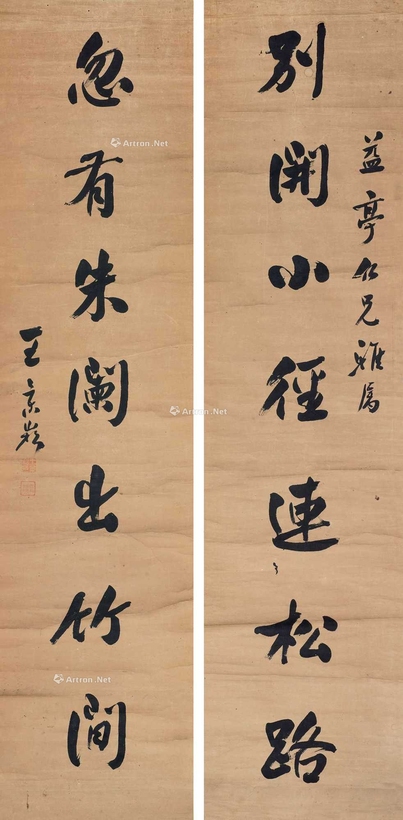 益亭仁兄雅属
別開小徑連松路
忽有朱闌出竹間
王
Artron.Net
Artron.Net
Artron.Net